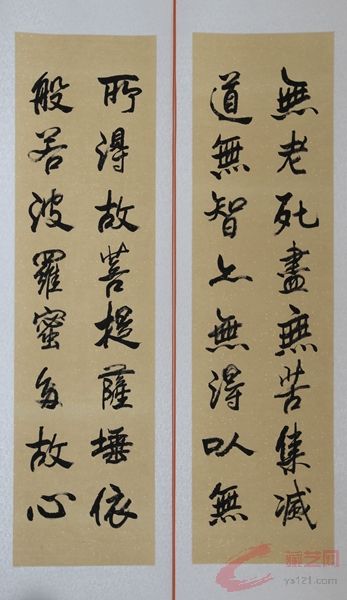 無老死盡無苦集滅
道無智亦無得以無
所得故菩提薩埵依
般若波羅蜜多故心
藏艺网
ys121.com